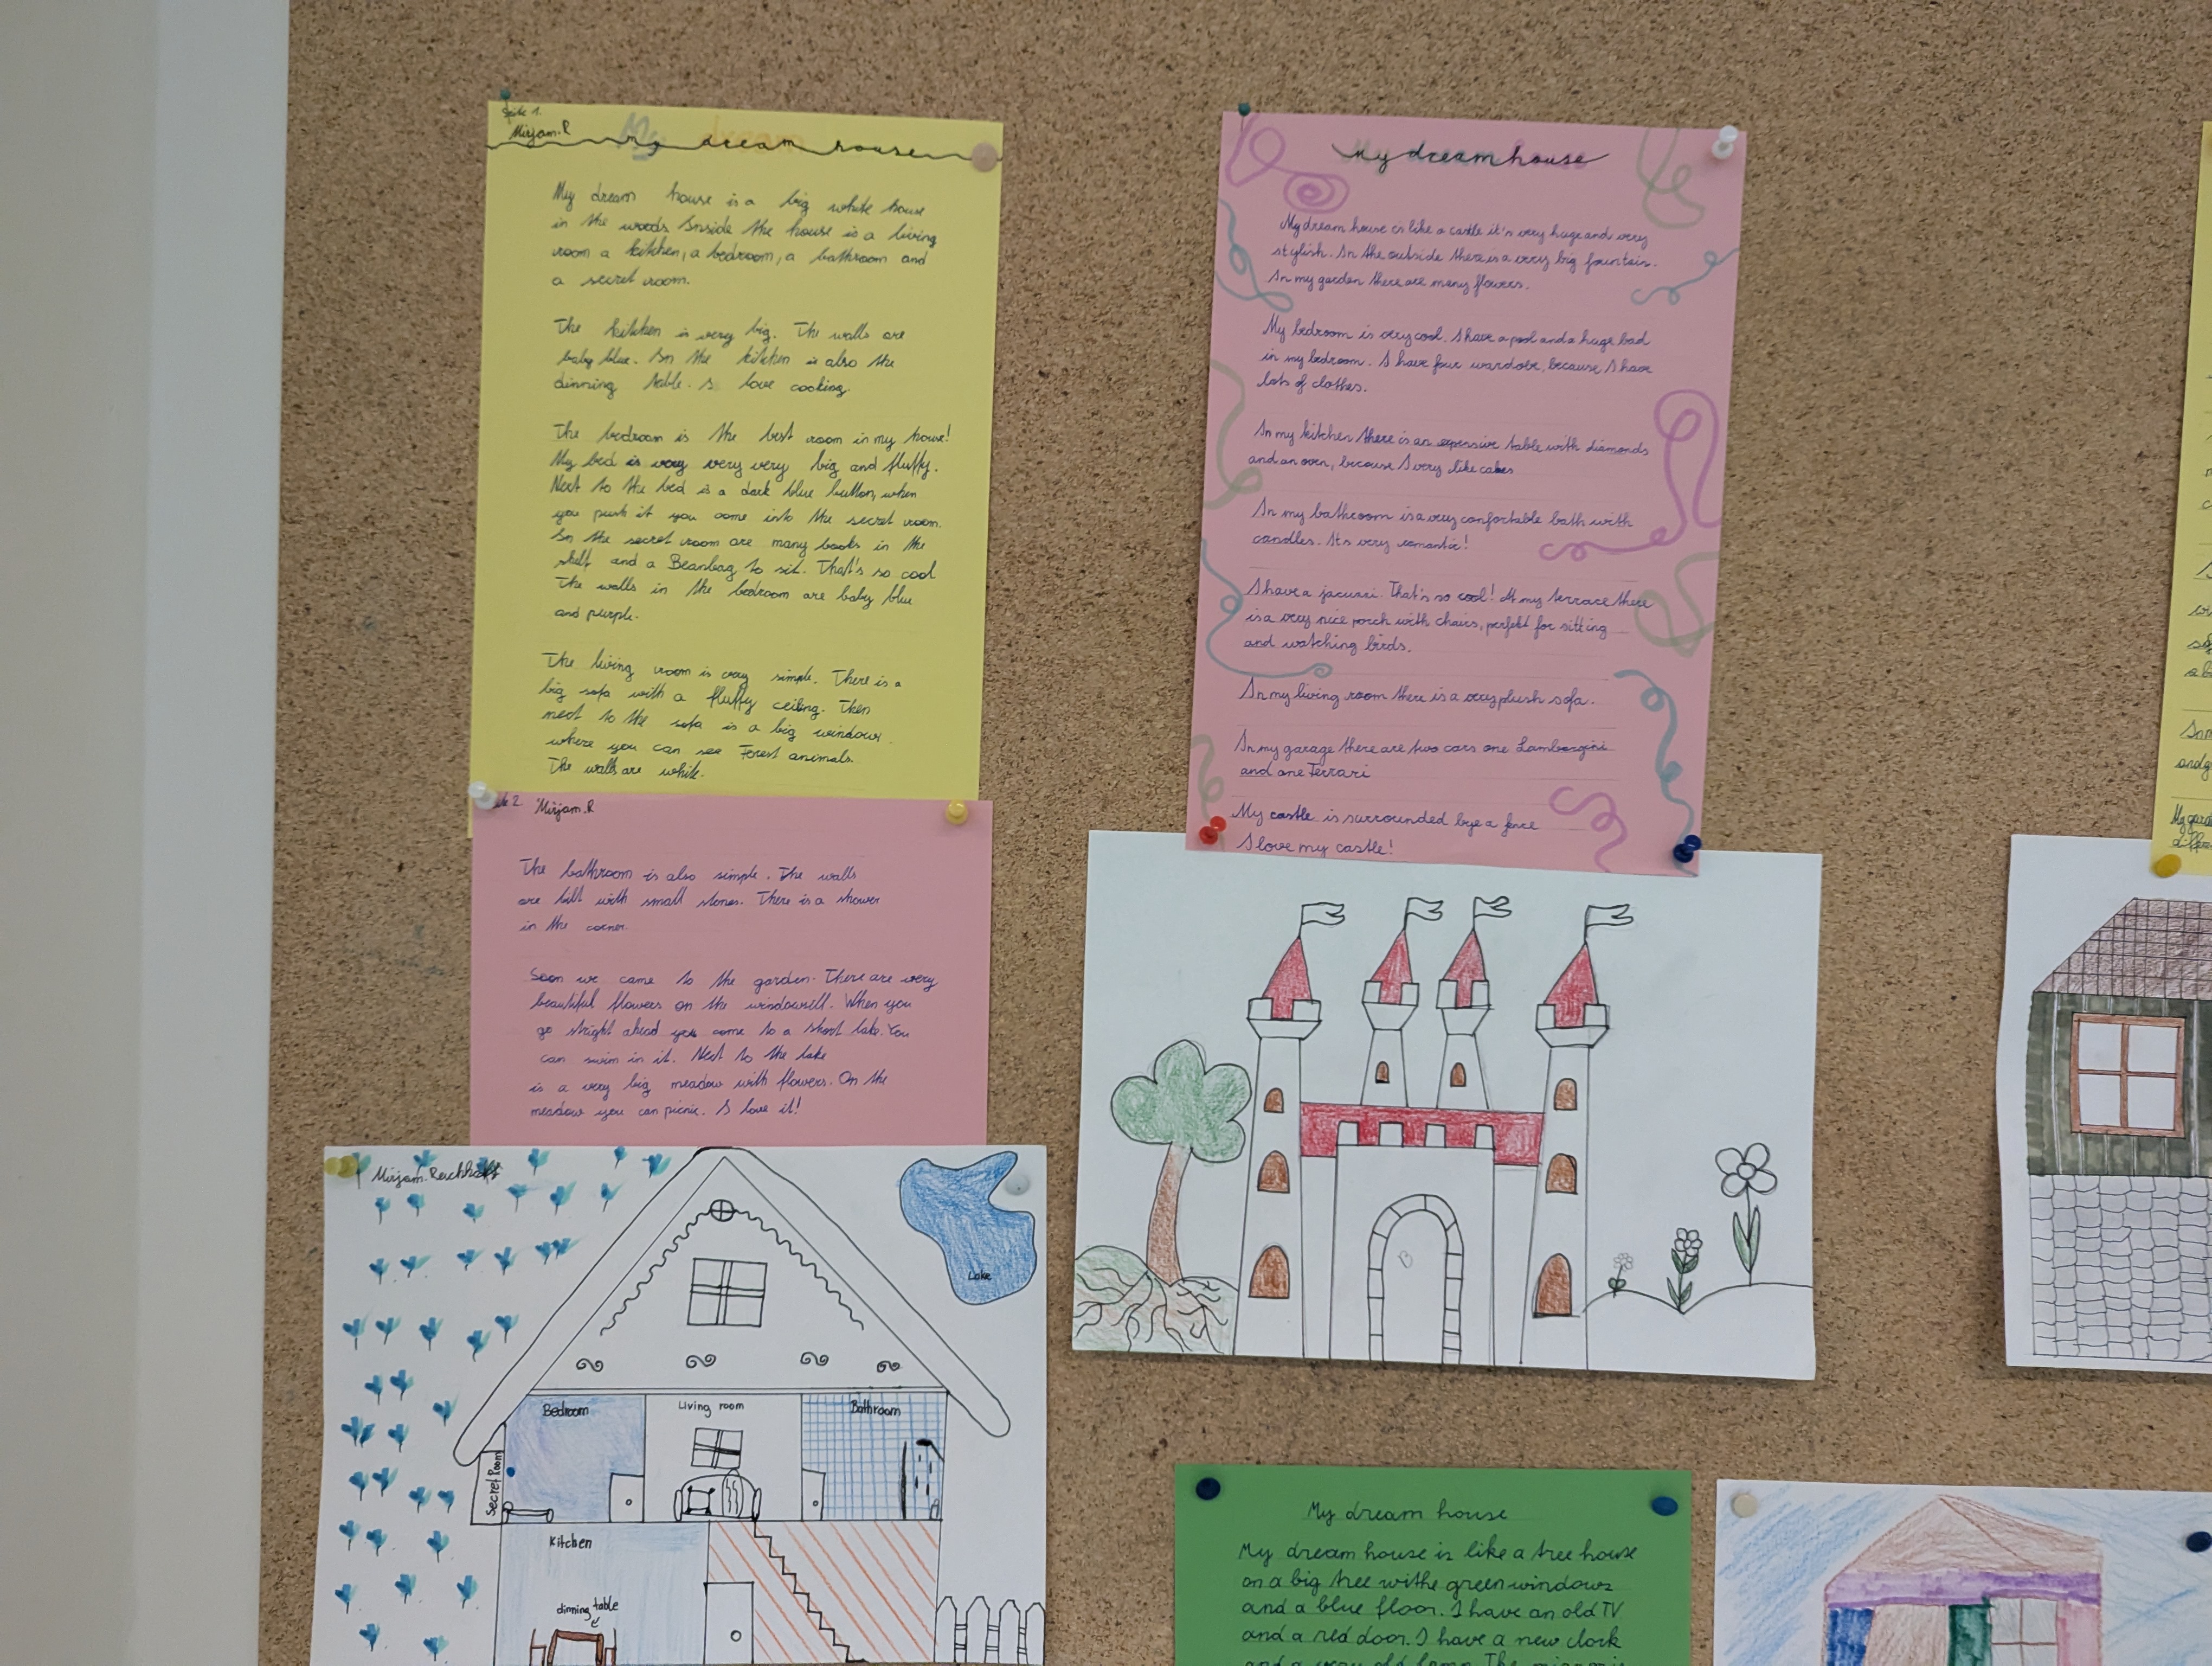 Seite 1.
Mirjam.R
My dream house
My dream house is a big white house
in the woods Inside the house is a living
room a kitchen, a bedroom, a bathroom and
a secret room.
The kitchen is very big. The walls are
baby blue. In the kitchen is also the
dinning table. I love cooking.
The bedroom is the best room in my house!
My bed is very very very big and fluffy.
Next to the bed is a dark blue button, when
you push it you come into the secret room.
In the secret room are many books in the
and a Beanbag to sit. That's so cool
The walls in the bedroom are baby blue
and purple.
The living room is very simple. There is a
big sofa with a fluffy ceiling. Then
next to the sofa is a big window
where you can see Forest animals.
The walls are white.
2. Mirjam.R
The bathroom is also simple. The walls
are with small stones. There is a shower
in the corner.
Soon we came to the garden. There are very
beautiful flowers on the When you
go stright ahead you come to a short lake. You
can swim in it. Next to the lake
is a very big meadow with flowers. On the
meadow you can picnic. I love it!
Mirjam.
Lake
Bedroom
Living room
Bathroom
Secret Room
Kitchen
dinning table
My dream house
My dream house is like a castle it's very huge and very
stylish. In the outside there is a very big fountain.
In my garden there are many flowers.
My bedroom is very cool. I have a pool and a huge bad
in my bedroom. I have four wardobe, because I have
lots of clothes.
In my kitchen there is an expensive table with diamonds
and an oven, because I very like cakes
In my bathroom is a very confortable bath with
candles. It's very romantic!
I have a jacuari. That's so cool! At my terrace there
is a very nice porch with chairs, perfekt for sitting
and watching birds.
In my living room there is a very plush sofa.
In my garage there are two cars one Lamborgini
and one Ferrari
My castle is surrounded bye a fence
I love my castle!
My dream house
My dream house is like a tree house
on a big tree withe green windows
and a blue floor. I have an old TV
and a red door. I have a new clock
and a very old lamp. The
In m
and g
My gard
differe